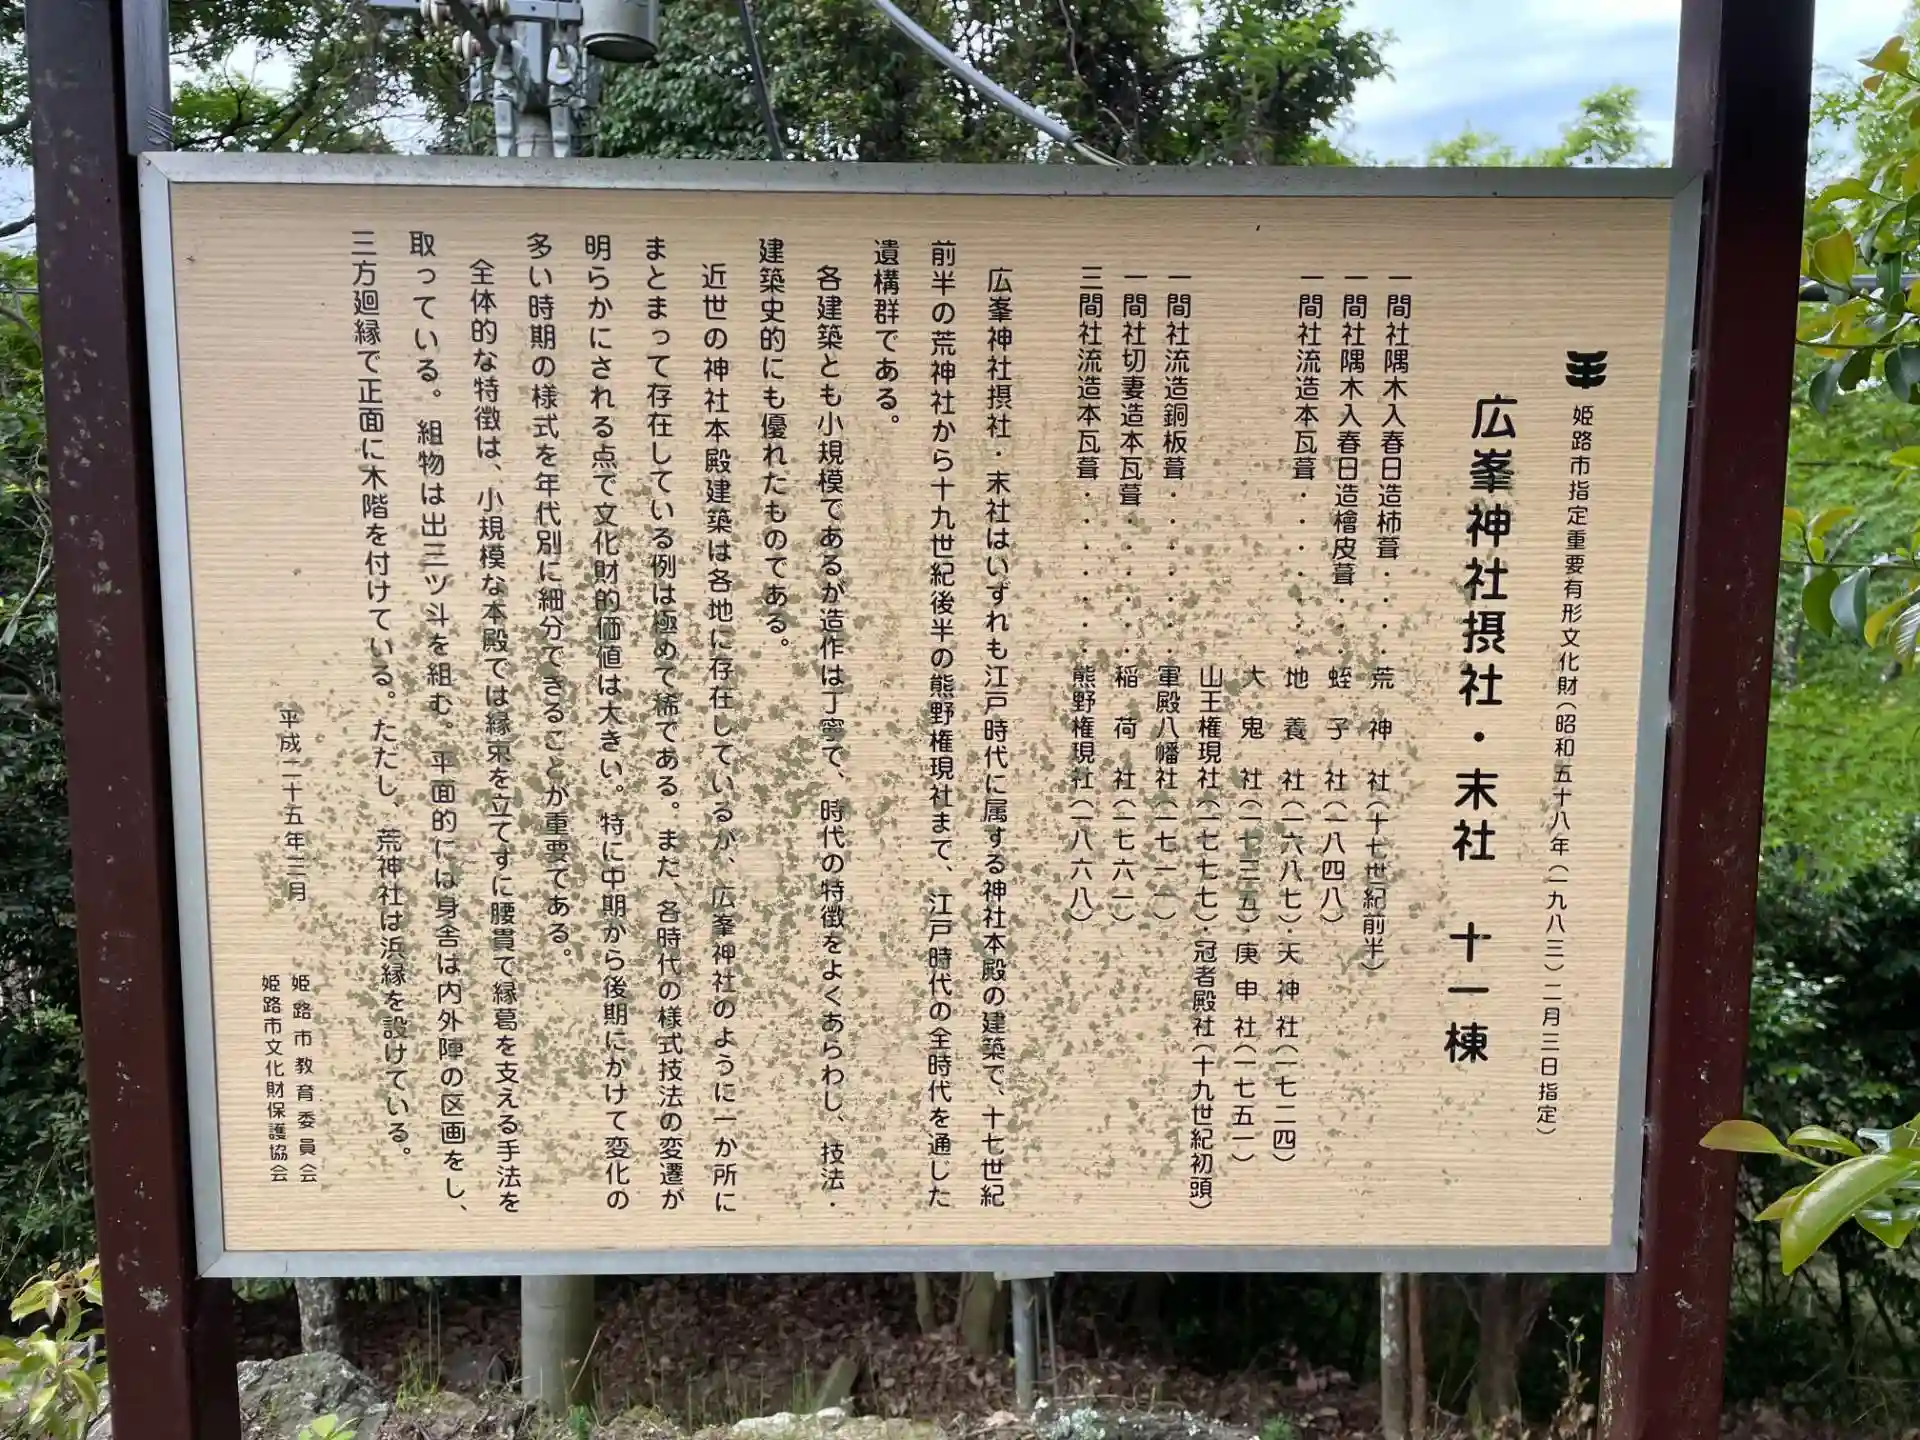 姫路市指定重要有形文化財(昭和五十八年(一九八三)二月三日指定)
広峯神社摂社・末社　十一棟
一間社隅木入春日造杮葺・・・・荒神社(十七世紀前半)
一間社隅木入春日造檜皮葺・・・蛭子社(一八四八)
一間社流造本瓦葺・・・・・・・地養社(一六八七)・天神社(一七二四)
大鬼社(一七三五)・庚申社(一七五一)
山王権現社(一七七七)・冠者殿社(十九世紀初頭)
一間社流造銅板葺・・・・・・・軍殿八幡社(一七一一)
一間社切妻造本瓦葺・・・・・・稲荷社(一七六一)
三間社流造本瓦葺・・・・・・・熊野権現社(一八六八)
広峯神社摂社・末社はいずれも江戸時代に属する神社本殿の建築で、十七世紀
前半の荒神社から十九世紀後半の熊野権現社まで、江戸時代の全時代を通した
遺構群である。
各建築とも小規模であるが造作は丁寧で、時代の特徴をよくあらわし、技法・
建築史的にも優れたものである。
近世の神社本殿建築は各地に存在しているが、広峯神社のように一か所に
まとまって存在している例は極めて稀である。また、各時代の様式技法の変遷が
明らかにされる点で文化財的価値は大きい。特に中期から後期にかけて変化の
多い時期の様式を年代別に細分できることが重要である。
全体的な特徴は、小規模な本殿では縁束を立てずに腰貫で縁葛を支える手法を
取っている。組物は出三ツ斗を組む。平面的には身舎は内外陣の区画をし、
三方廻縁で正面に木階を付けている。ただし、荒神社は浜縁を設けている。
平成二十五年三月
姫路市教育委員会
姫路市文化財保護協会